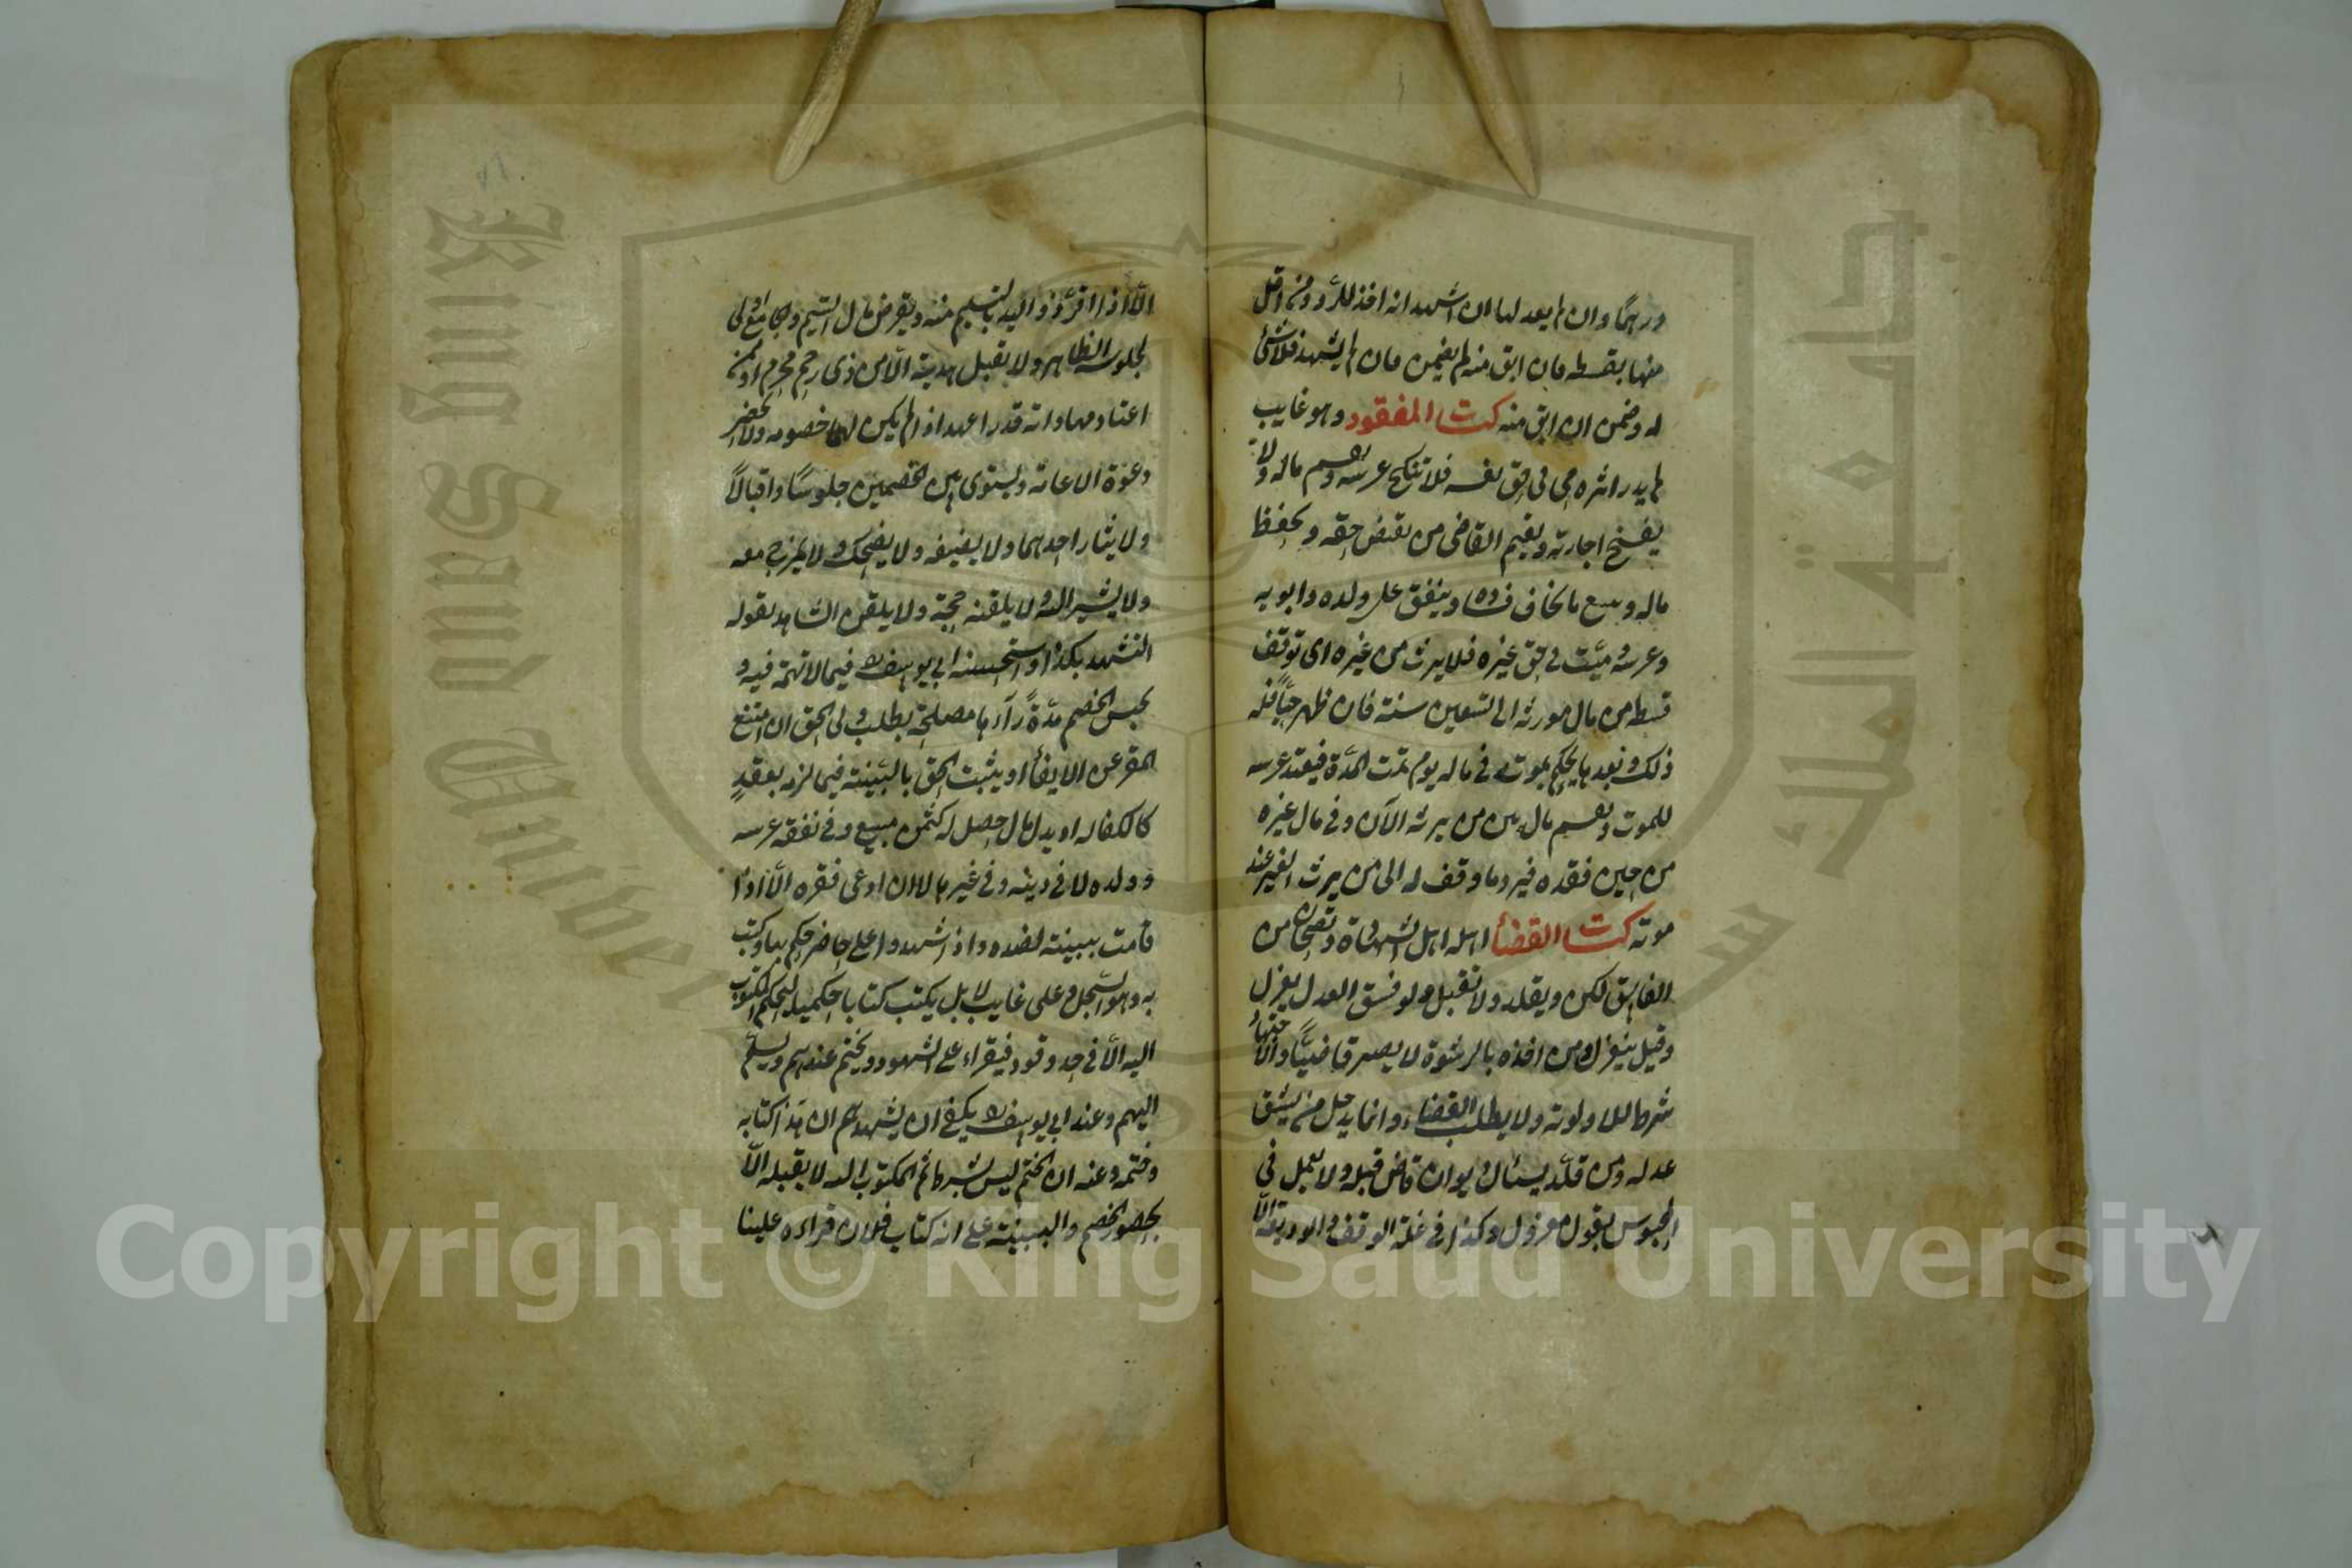 درهمًا وان لم يعدلها ان اشهد انه اخذ للرد ومن اقل
منها بقسطه فان ابق منه لم يضمن فان لم يشهد فلا شئ
له وضمن ان ابق منه كتاب المفقود وهو غايب
لم يدر اثره حى فى حق نفسه فلا تنكح عرسه ولا يقسم ماله ولا
يفسخ اجارته ويقيم القاضى من يقبض حقه ويحفظ
ماله ويبيع ما يخاف فساده وينفق على ولده وابويه
وعرسه وميت فى حق غيره فلا يرث من غيره اى توقف
قسطه من مال مورثه الى تسعين سنة فان ظهر حيًا فله
ذلك وبعدها يحكم بموته فى ماله يوم تمت المدة فيعتد عرسه
للموت ويقسم ماله بين من يرثه الآن وفى مال غيره
من حين فقده فيرد ما وقف له الى من يرث الغير عند
موته كتاب القضاء اهله اهل الشهادة وتصح من
الفاسق لكن ويقلد ولا تقبل ولو فسق العدل يعزل
وقيل ينعزل ومن اخذه بالرشوة لا يصير قاضيًا والاجتهاد
شرط للاولوية ولا يطلب القضاء وانما يدخل من يثق
عدله ومن قلد يسئال ديوان قاض قبله ولا يعمل فى
المحبوس بقول معزول وكذا فى غلة الوقف والوديعة الا
الا اذا اقر ذو اليد بالتسليم منه ويقرض مال اليتيم والجامع اولى
لجلوسه الظاهر ولا يقبل هدية الا من ذى رحم محرم او ممن
اعتاد مهاداته قدرا عهد اذا لم يكن لهما خصومه ولا يحضر
دعوة الا عامة ويسوى بين الخصمين جلوسًا واقبالًا
ولا يسار احدهما ولا يضيفه ولا يضحك ولا يمزح معه
ولا يشير اليه ولا يلقنه حجة ولا يلقن الشاهد بقوله
اتشهد بكذا واستحسنه ابى يوسف فيما لا تهمة فيه و
يحبس الخصم مدة رآها مصلحة بطلب ولى الحق ان امتنع
المقر عن الايفاء او يثبت الحق بالبينة فيما لزمه بعقدٍ
كالكفاله او بدل مال حصل له كثمن مبيع وفى نفقة عرسه
وولده لا فى دينه وفى غيرها لا ان ادعى فقره الا اذا
قامت ببينة لضده واذا شهدوا على حاضر حكم بها وكتب
به وهو السجل وعلى غايب لا بل يكتب كتابا حكميا ليحكم المكتوب
اليه الا فى حد وقود فيقراء على الشهود ويختم عندهم ويسلم
اليهم وعند ابى يوسف يكفى ان يشهدهم ان هذا كتابه
وختمه وعنه ان الختم ليس بشرط ثم المكتوب اليه لا يقبله الا
بحضور الخصم والبينة على انه كتاب فلان قراءه علينا
Copyright © King Saud University
King Saud University